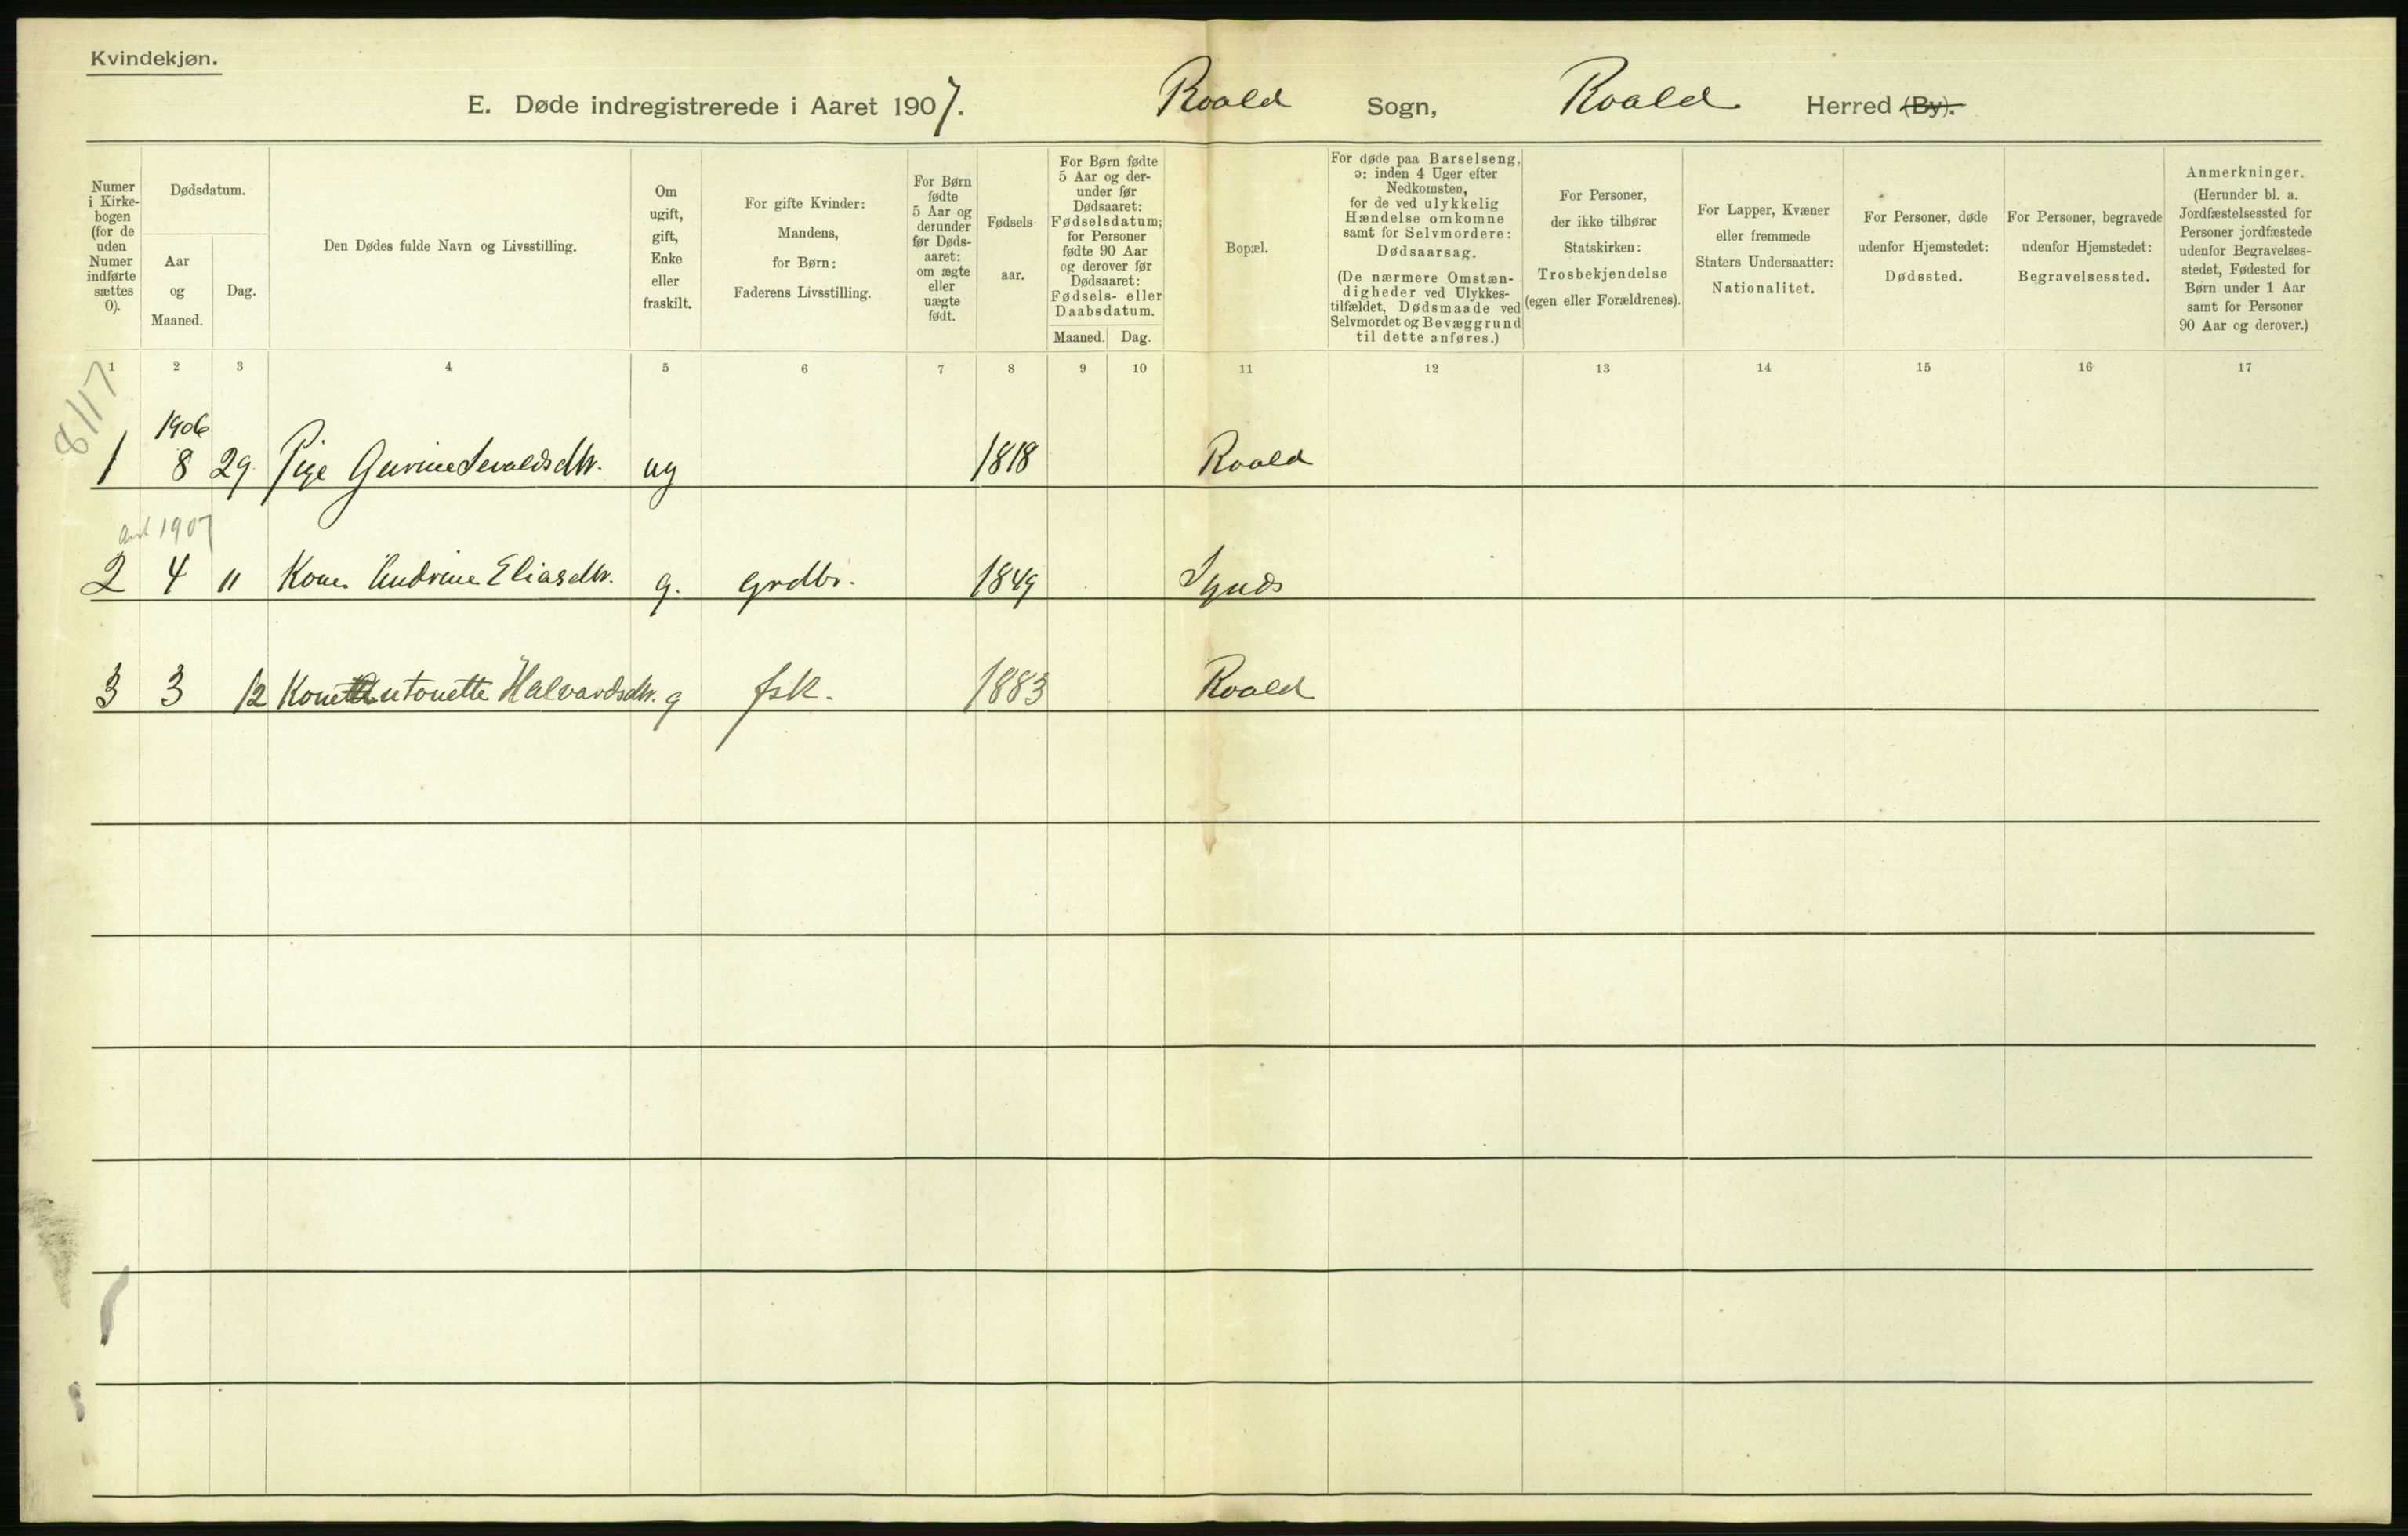 Kvindekjøn.
E. Døde indregistrerede i Aaret 1907. Roald Sogn, Roald Herred (By).
Numer i Kirkebogen (for de uden Numer indførte sættes 0).
Dødsdatum.
Aar og Maaned.
Dag.
Den Dødes fulde Navn og Livsstilling.
Om ugift, gift, Enke eller fraskilt.
For gifte Kvinder: Mandens, for Børn: Faderens Livsstilling.
For Børn fødte 5 Aar og derunder før Dødsaaret: om ægte eller uægte født.
Fødselsaar.
For Børn fødte 5 Aar og derunder før Dødsaaret: Fødselsdatum; for Personer fødte 90 Aar og derover før Dødsaaret: Fødsels- eller Daabsdatum.
Maaned. Dag.
Bopæl.
For døde paa Barselseng, ɔ: inden 4 Uger efter Nedkomsten, for de ved ulykkelig Hændelse omkomne samt for Selvmordere: Dødsaarsag. (De nærmere Omstændigheder ved Ulykkestilfældet, Dødsmaade ved Selvmordet og Bevæggrund til dette anføres.)
For Personer, der ikke tilhører Statskirken: Trosbekjendelse (egen eller Forældrenes).
For Lapper, Kvæner eller fremmede Staters Undersaatter: Nationalitet.
For Personer, døde udenfor Hjemstedet: Dødssted.
For Personer, begravede udenfor Hjemstedet: Begravelsessted.
Anmerkninger. (Herunder bl. a. Jordfæstelsessted for Personer jordfæstede udenfor Begravelsesstedet, Fødested for Børn under 1 Aar samt for Personer 90 Aar og derover.)
1 2 3 4 5 6 7 8 9 10 11 12 13 14 15 16 17
8117
1906
1 8 29 Pige Gurine Sevaldsdtr. ug 1818 Roald
1907
2 4 11 Kone Andrine Eliasdtr. g. grdbr. 1849 Synes
3 3 12 Kone Antonette Halvardsdtr. g fsk. 1883 Roald